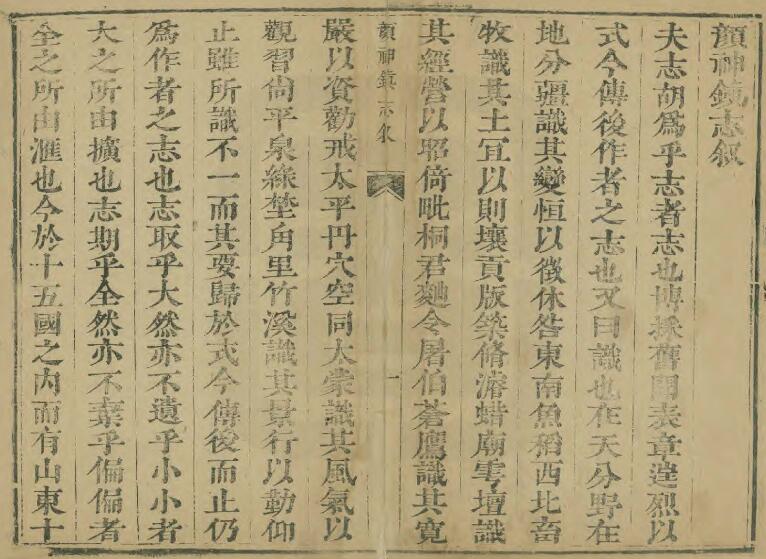 顔神鎮志叙
夫志胡爲乎志者志也博採舊聞表章逹烈以
式今傳後作者之志也又曰識也在天分野在
地分疆識其變恒以徵休咎東南魚稻西北畜
牧識其土宜以則壤貢版築脩濬蜡廟雩壇識
其經營以昭倚毗桐君麹令屠伯蒼鷹識其寛
顔神鎮志叙
一
嚴以資勸戒太平丹穴空同太蒙識其風氣以
觀習尚平泉綠埜角里竹溪識其景行以勤仰
止雖所識不一而其要歸於式今傳後而止仍
爲作者之志也志取乎大然亦不遺乎小小者
大之所由擴也志期乎全然亦不棄乎偏偏者
全之所由滙也今於十五國之内而有山東十